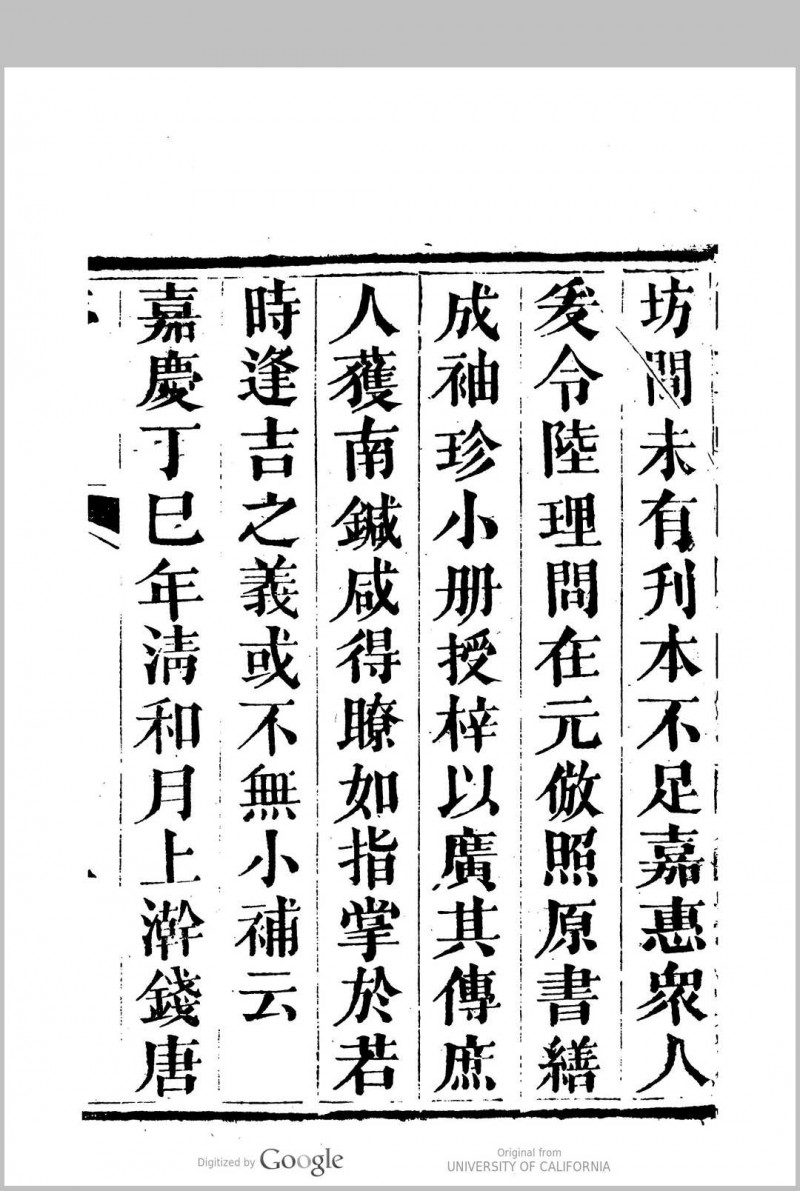 坊間未有刊本不足嘉惠衆人
爰令陸理問在元倣照原書繕
成袖珍小册授梓以廣其傳庶
人獲南鍼咸得瞭如指掌於若
時逢吉之義或不無小補云
嘉慶丁巳年清和月上澣錢唐
Digitized by Google
Original from
UNIVERSITY OF CALIFORNIA